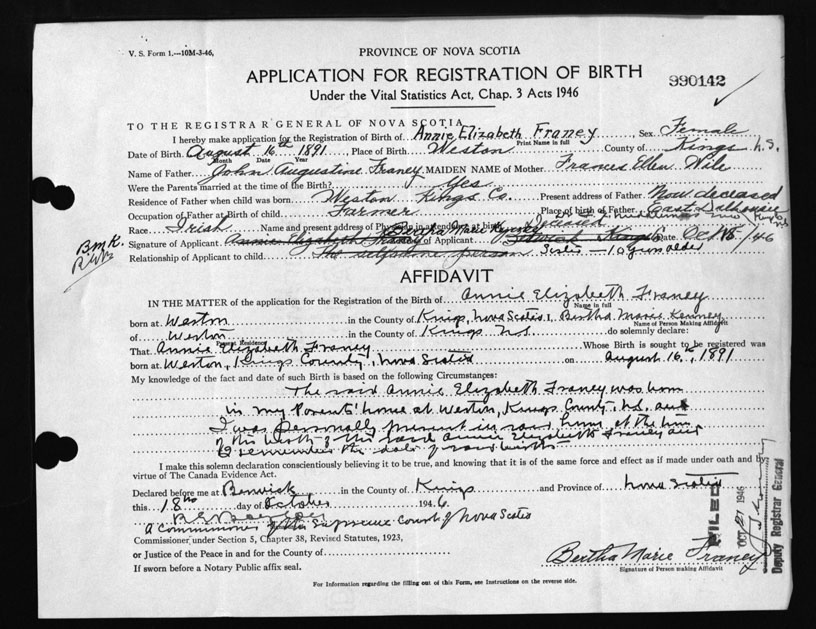 V. S. Form 1.—10M-3-46,
PROVINCE OF NOVA SCOTIA
APPLICATION FOR REGISTRATION OF BIRTH
990142
Under the Vital Statistics Act, Chap. 3 Acts 1946
TO THE REGISTRAR GENERAL OF NOVA SCOTIA
I hereby make application for the Registration of Birth of Annie Elizabeth Franey Sex Female
Print Name in full
Date of Birth August 16th 1891 Place of Birth Weston County of Kings N.S.
Month Date Year
Name of Father John Augustine Franey MAIDEN NAME of Mother Frances Ellen Wile
Were the Parents married at the time of the Birth? Yes
Residence of Father when child was born Weston Kings Co. Present address of Father Now deceased
Occupation of Father at Birth of child Farmer Place of birth of Father East Dalhousie
Race Irish Name and present address of Physician in attendance at birth deceased
B.M.K.
Signature of Applicant Annie Elizabeth Franey Bertha Marie of Applicant Date Oct 18/46
Relationship of Applicant to child The selfsame person Sister - 10 yrs older
AFFIDAVIT
IN THE MATTER of the application for the Registration of the Birth of Annie Elizabeth Franey
Name in full
born at Weston in the County of Kings, Nova Scotia I, Bertha Marie Kenney
Name of Person Making Affidavit
of Weston in the County of Kings N.S. do solemnly declare:
Present Residence
That Annie Elizabeth Franey Whose Birth is sought to be registered was
born at Weston, Kings County, Nova Scotia on August 16th, 1891
My knowledge of the fact and date of such Birth is based on the following Circumstances:
The said Annie Elizabeth Franey was born
in my Parents' home at Weston, Kings County, N.S. and
I was personally present in said home at the time
of the birth of the said Annie Elizabeth Franey and
remember the date of said birth
I make this solemn declaration conscientiously believing it to be true, and knowing that it is of the same force and effect as if made under oath and by
virtue of The Canada Evidence Act.
Declared before me at Berwick in the County of Kings and Province of Nova Scotia
this 18th day of October 1946
A Commissioner of the Supreme Court of Nova Scotia
Commissioner under Section 5, Chapter 38, Revised Statutes, 1923,
or Justice of the Peace in and for the County of
If sworn before a Notary Public affix seal.
Bertha Marie Franey
Signature of Person making Affidavit
FILED
OCT 21 1946
Deputy Registrar General
For Information regarding the filling out of this Form, see Instructions on the reverse side.